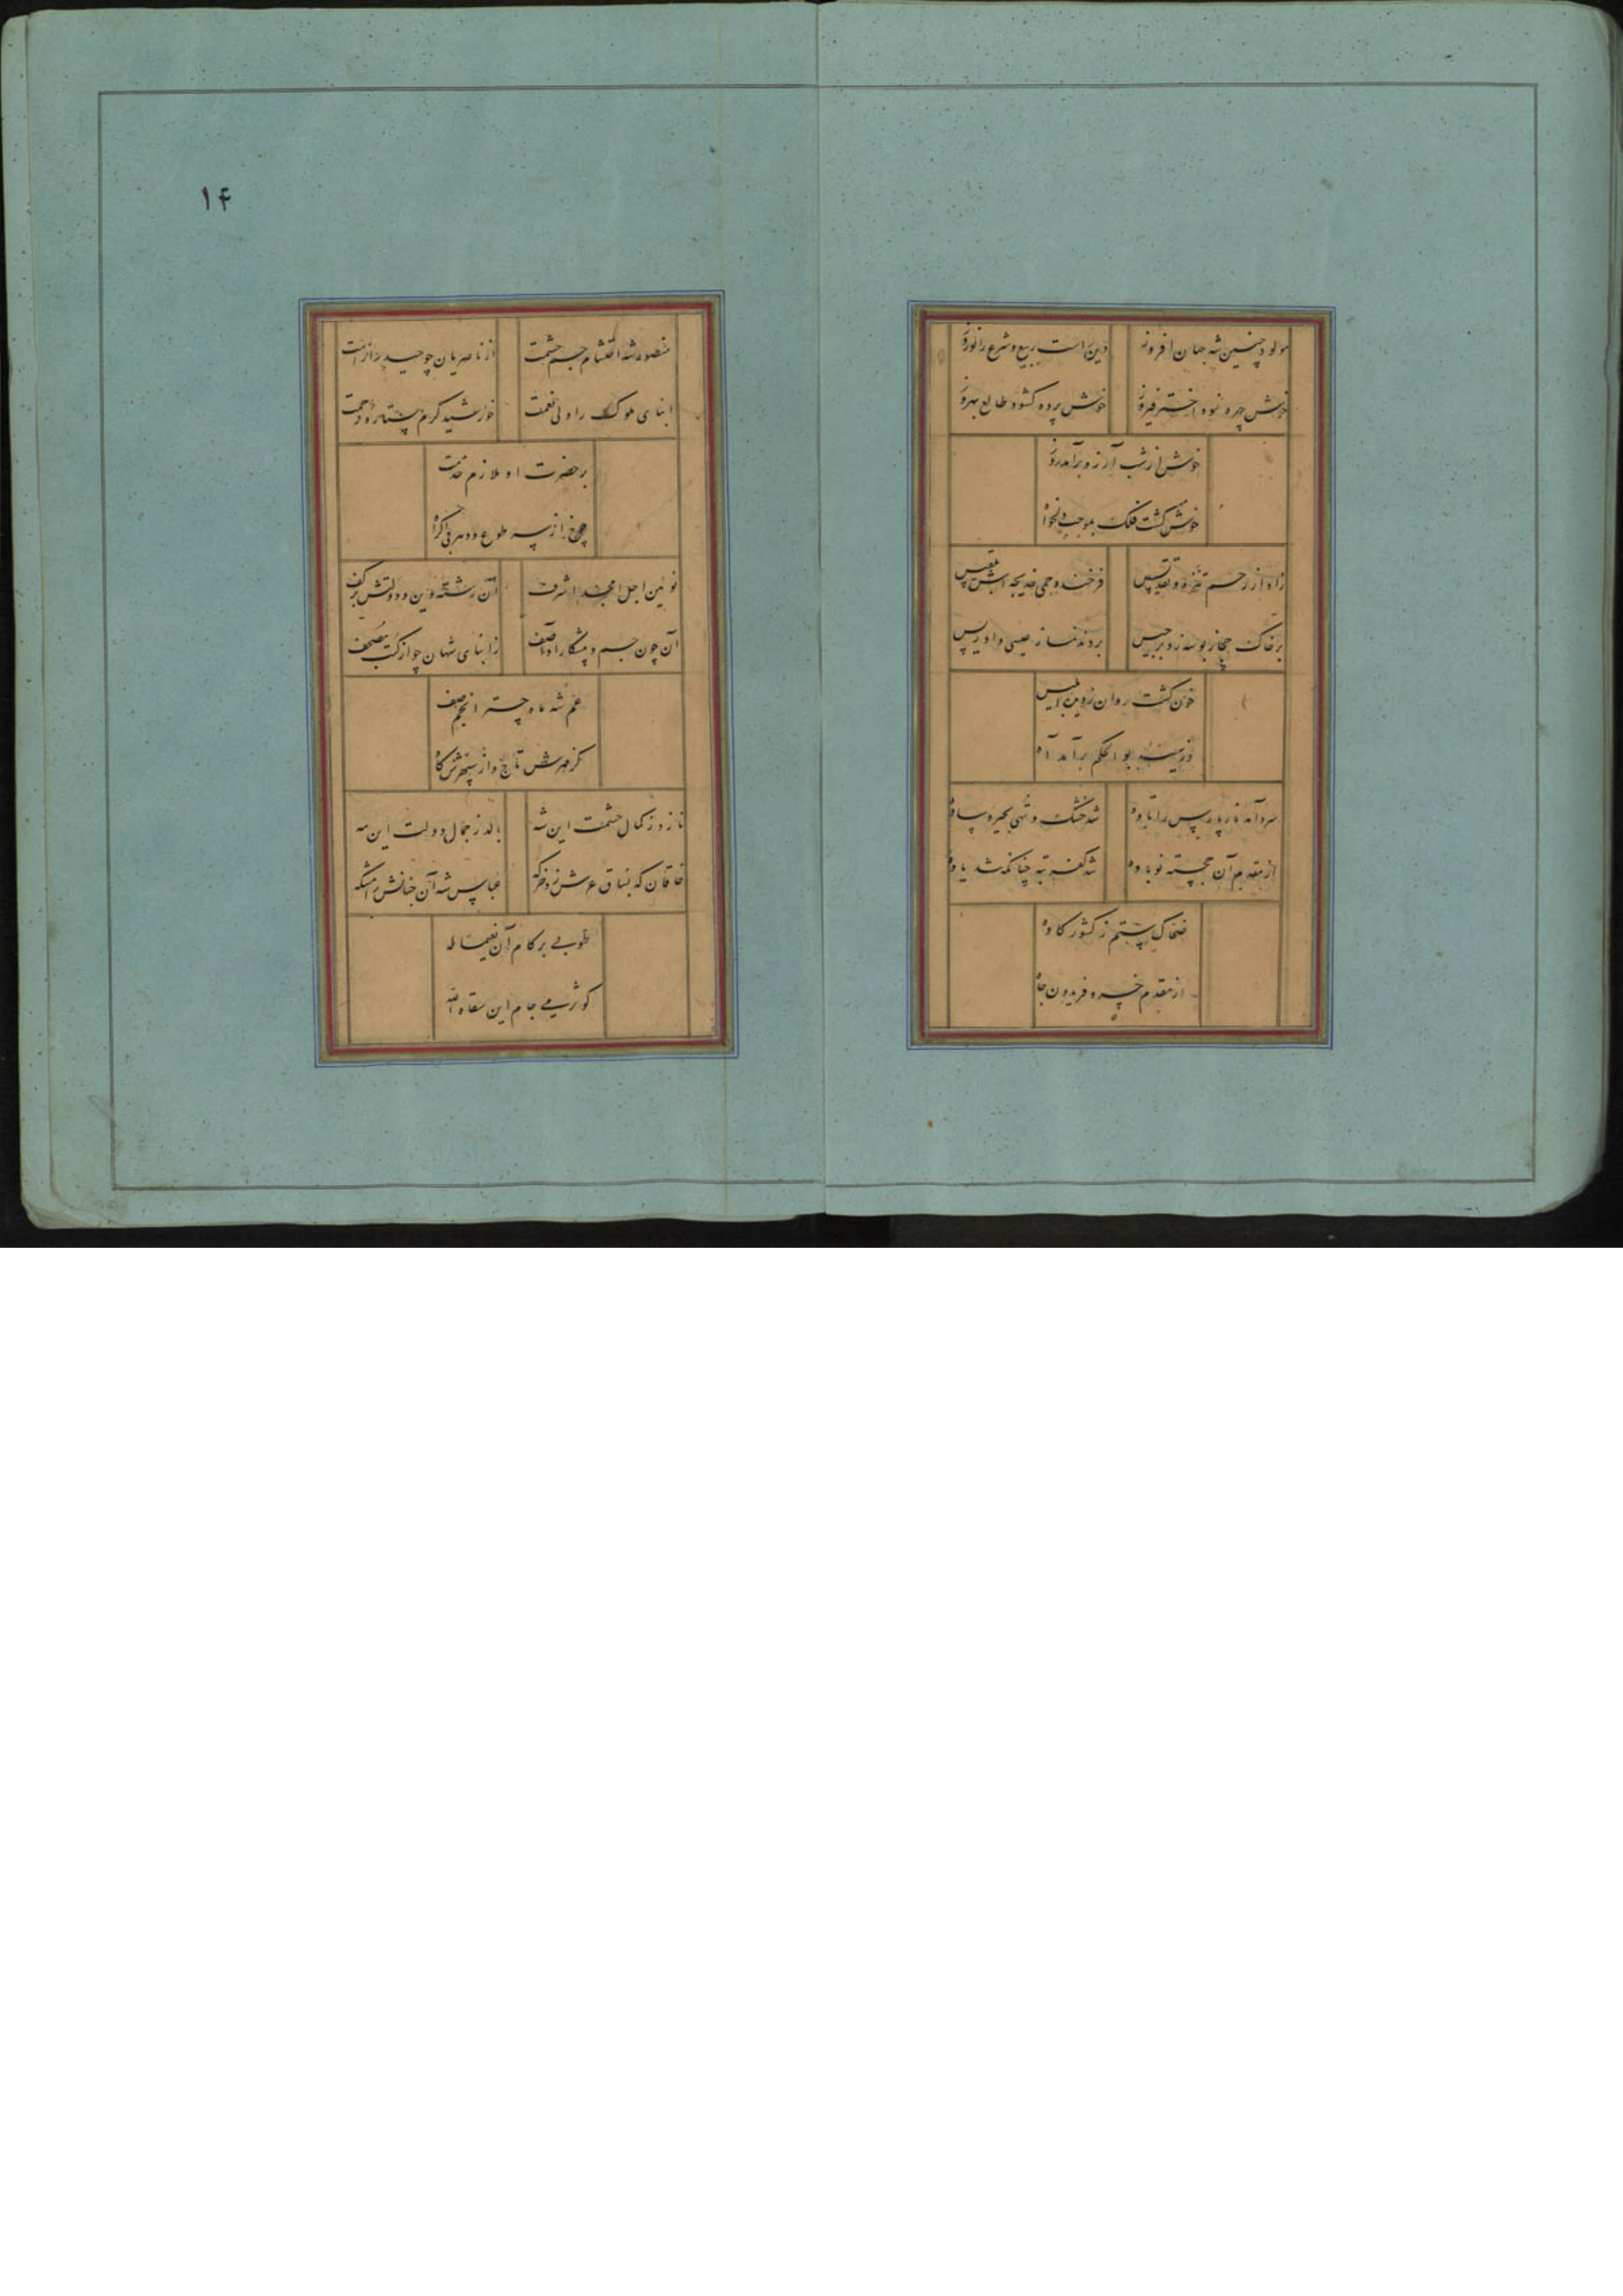 مولود چنین شه جهان افروز
دین راست ربیع و شرع را نوروز
خوش چهره نمود اختر فیروز
خوش پرده کشود طالع بهروز
خوش از شب آرزو برآمد روز
خوش گشت فلک بموجب دلخواه
زاد از رحم تنزه و تقدیس
فرخنده جمی خدیجه اش بلقیس
بر خاک حجاز بوسه زد برجیس
بردند نماز عیسی و ادریس
خون گشت روان ز دیده ابلیس
وز سینه بوالحکم برآمد آه
سرد آمد نار پارس را تاوه
شد خشک و تهی بحیره ساوه
از مقدم آن خجسته نوباوه
شد کفر تبه چنانکه شد یاوه
ضحاک ستم ز کشور کاوه
از مقدم خسرو فریدون جاه
۱۴
منصور شه احتشام جم حشمت
از ناصریان چو حیدر از امت
ابنای ملوک را ولی نعمت
خورشید کرم ستاره رحمت
بر حضرت او ملازم خدمت
چرخ از پی طوع و دهر بی اکراه
نوئین اجل امجد اشرف
آن رشته دین و دولتش بر کف
آن چون جم و پیشکار او آصف
ز ابنای شهان چو از کتب مصحف
عم شه ماه چتر انجم صف
کز مهرش تاج و از سپهرش گاه
نازد ز کمال حشمت این شه
بالد ز جمال دولت این مه
خاقان که بساق عرش زد خرگه
عباس شه آن جنانش آرامگه
طوبی بر کام آن نعیما له
کوثر می جام این سقاه الله